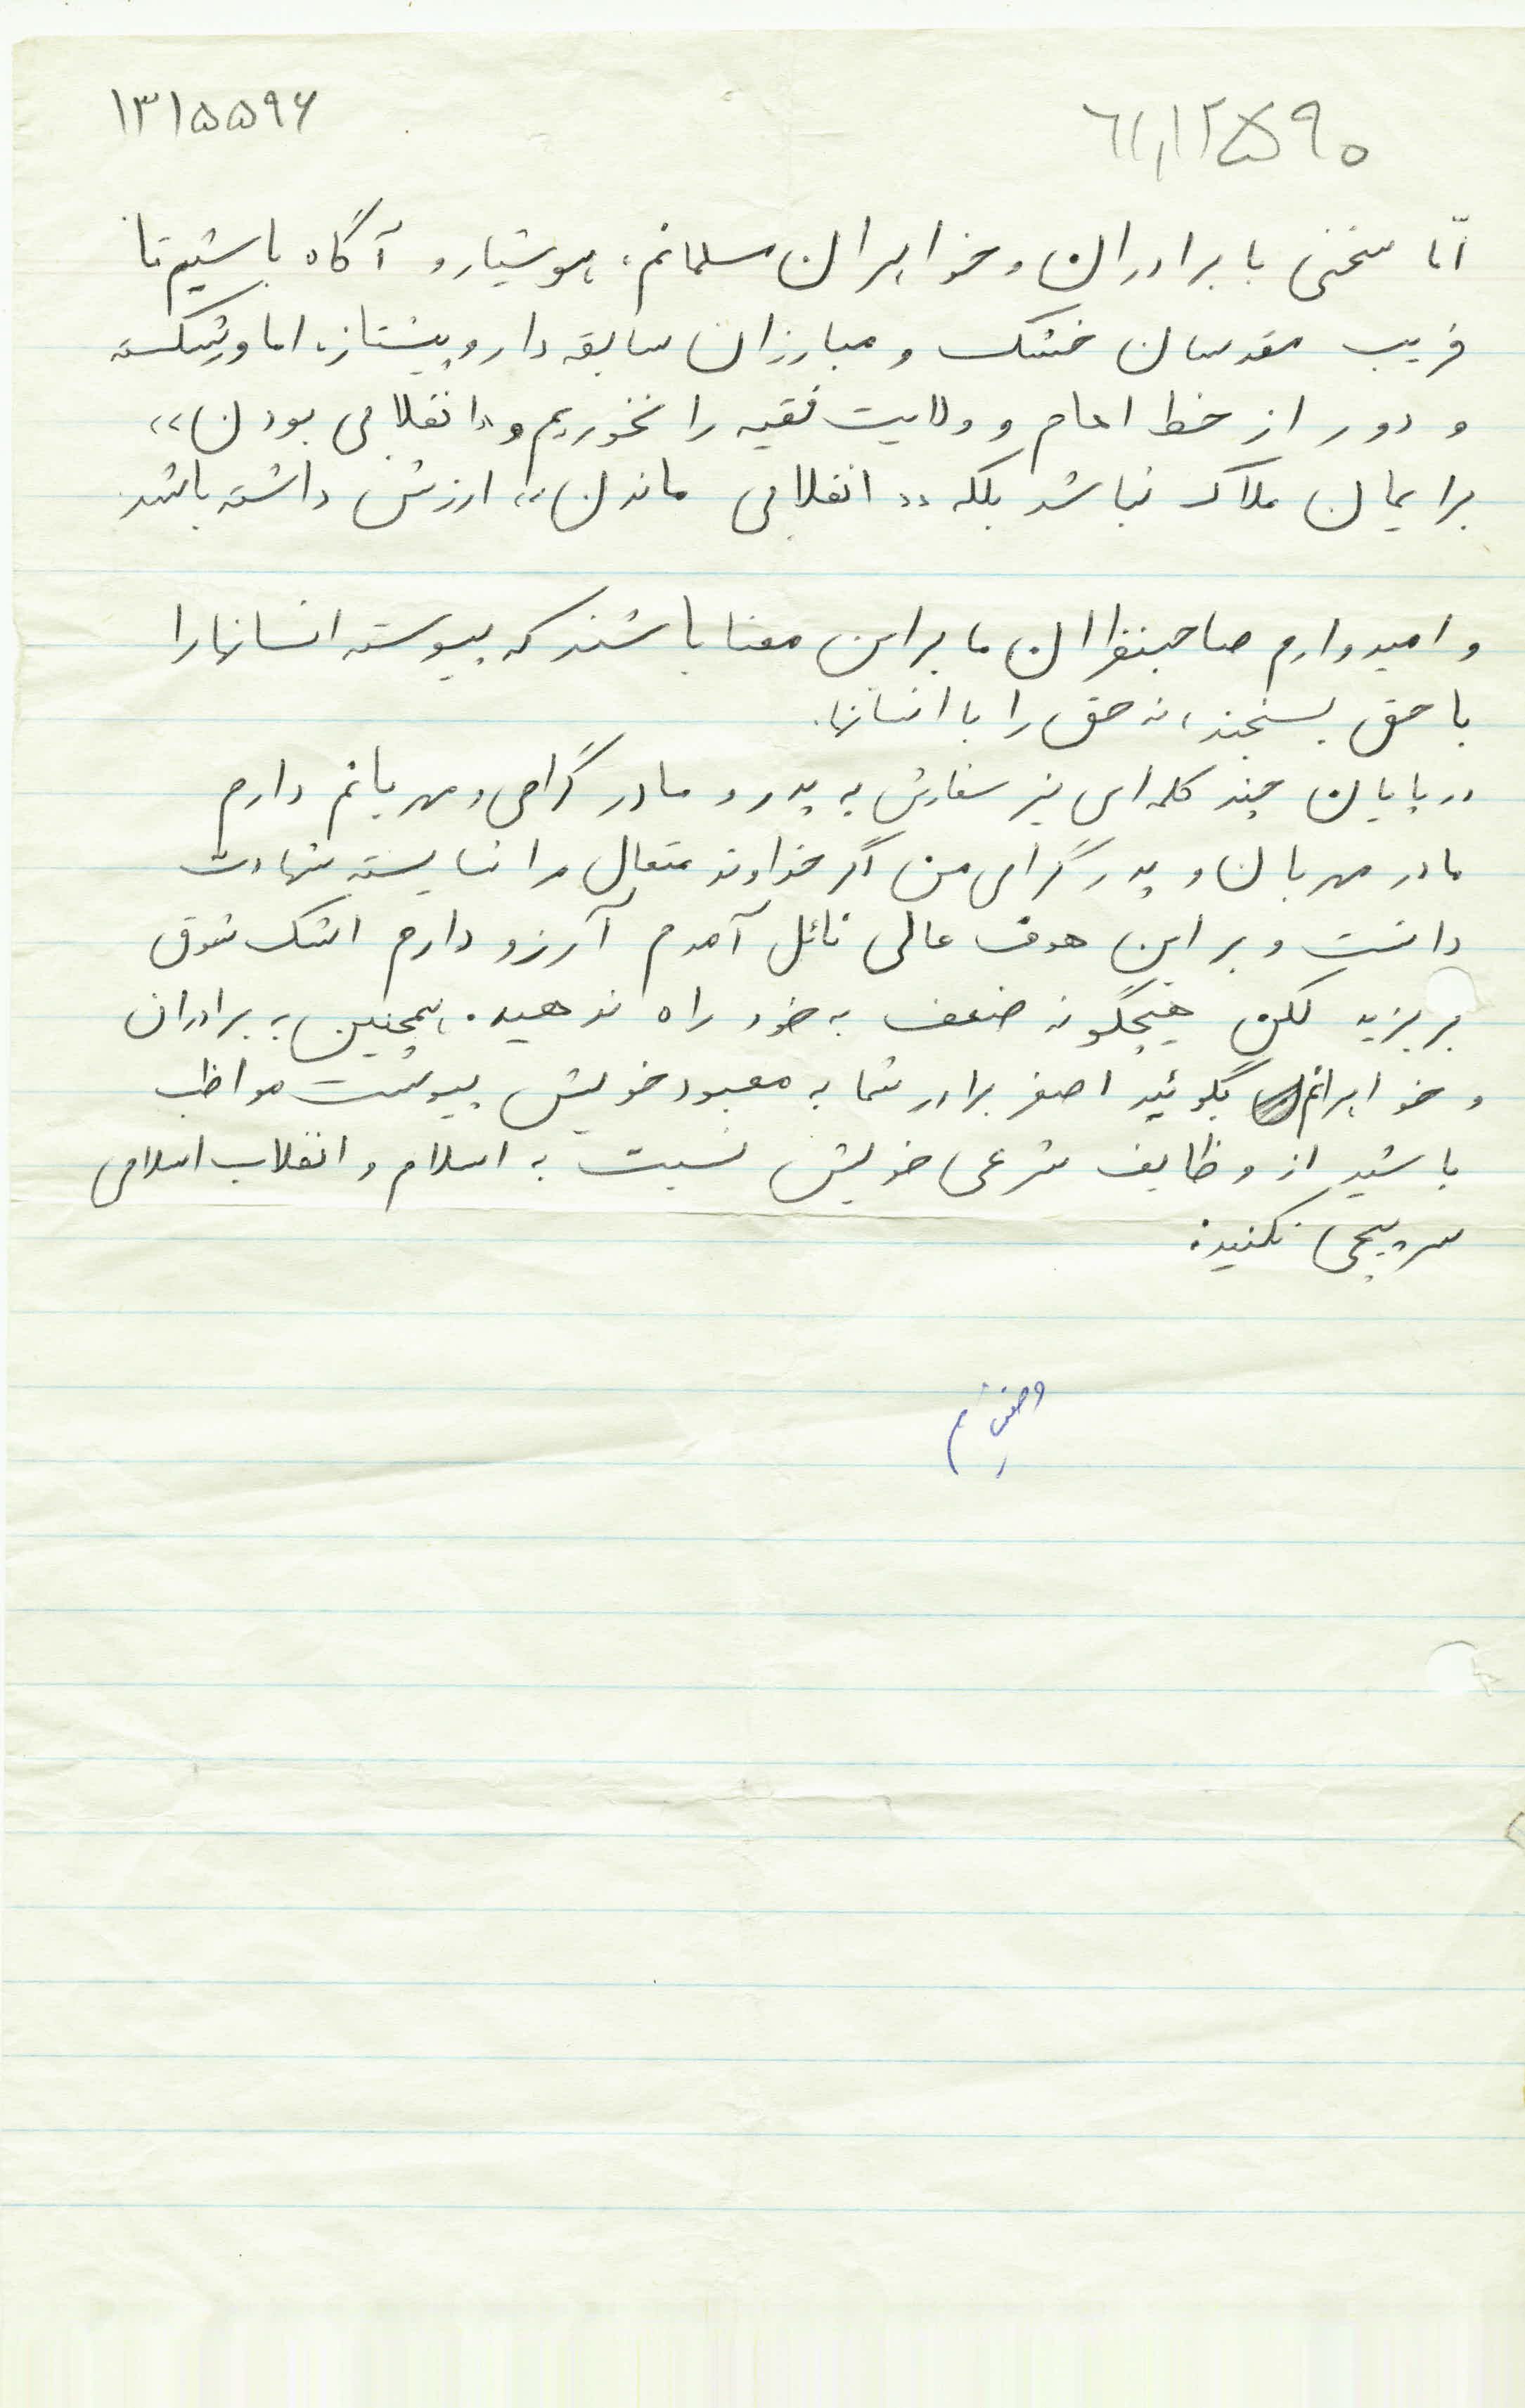 ۱۳۱۵۵۹۶
اما سخنی با برادران و خواهران مسلمانم، هوشیار و آگاه باشیم تا
فریب مقدسان خشک و مبارزان سابقه دار و پیشتاز، اما ورشکسته
و دور از خط امام و ولایت فقیه را نخوریم و «انقلابی بودن»
برایمان ملاک نباشد بلکه «انقلابی ماندن» ارزش داشته باشد.
و امیدوارم صاحبنظران ما بر این معنا باشند که پیوسته انسانها را
با حق بسنجند، نه حق را با انسانها.
در پایان چند کلمه ای نیز سفارش به پدر و مادر گرامی و مهربانم دارم
مادر مهربان و پدر گرامی من اگر خداوند متعال مرا شایسته شهادت
دانست و بر این هدف عالی نائل آمدم آرزو دارم اشک شوق
بریزید لکن هیچگونه ضعف به خود راه ندهید. همچنین به برادران
و خواهرانم بگوئید اصغر برادر شما به معبود خویش پیوست مواظب
باشید از وظایف شرعی خویش نسبت به اسلام و انقلاب اسلامی
سرپیچی نکنید.